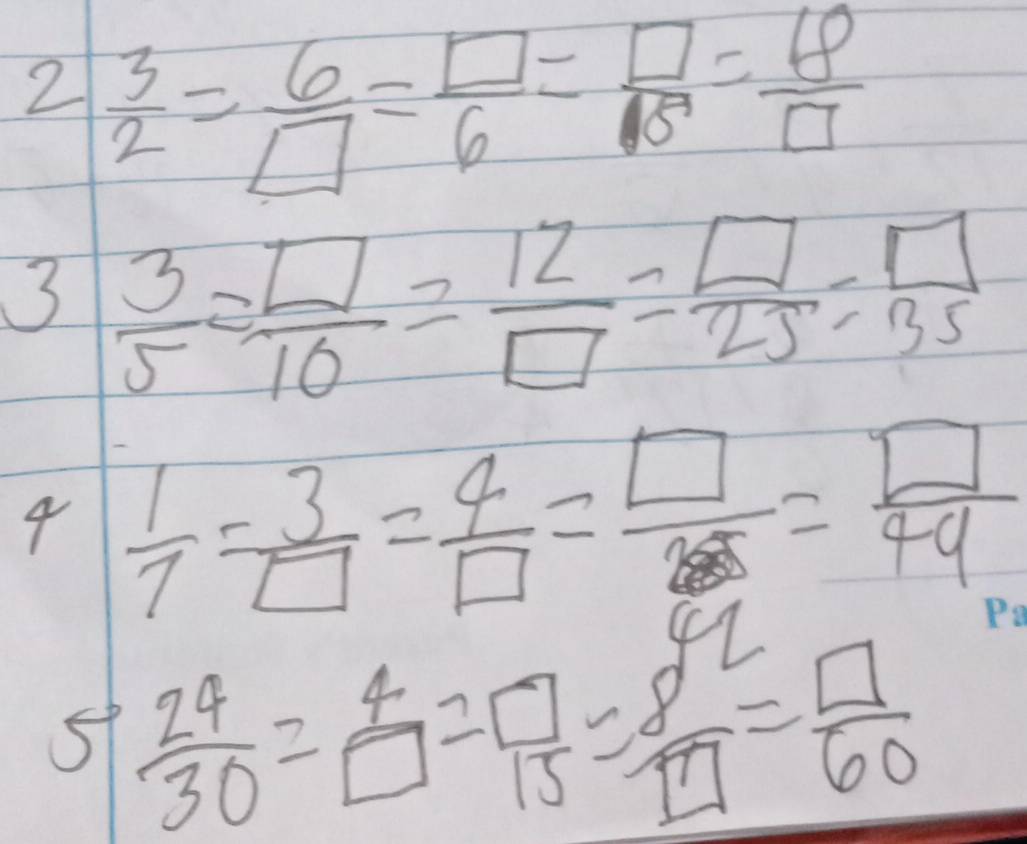 2 3/2 = 6/□ = □/6 = □/15 = 18/□
3 3/5 = □/10 = 12/□ = □/25 = □/35
4 1/7 = 3/□ = 4/□ = □/42 = □/49
5 24/30 = 4/□ = □/15 = 8/□ = □/60
Pa